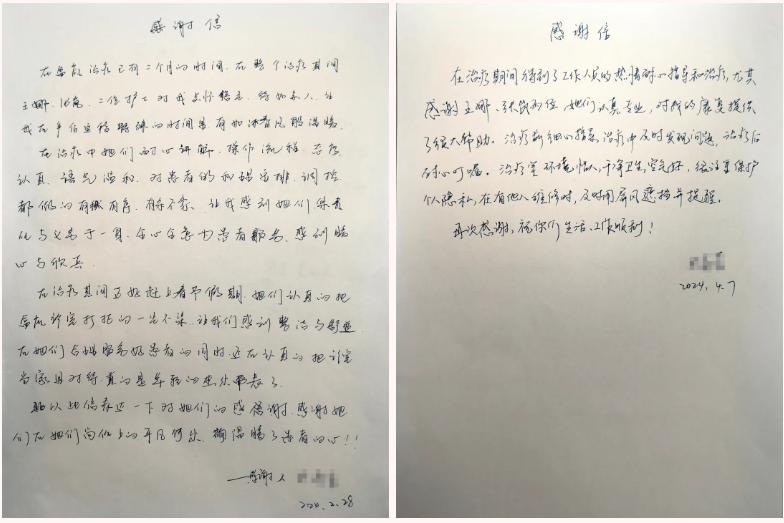 感谢信
在 治疗已有二个月的时间，在整个治疗其间
王娜、 二位护士对我关怀 ，待如亲人，让
我在 的时间里有如沐春风般温暖。
在治疗中她们耐心讲解，操作流程，态度
认真，语气温和，对患者的 安排，调控
都做的有 有序，有条不紊，让我感到她们 责
任与义务于一身，全心全意为患者服务，感到暖
心与欣慰。
在治疗其间正好赶上春节假期，她们认真的把
打扫的一尘不染，让我们感到整洁与舒适
在她们 服务好患者的同时，还在认真的把诊室
当家 对待，真的是年轻的
以此信表达一下对她们的感谢，感谢她
们在她们岗位上的平凡付出， 温暖了患者的心！！
感谢人
2024.2.28
感谢信
在治疗期间得到了工作人员的热情耐心指导和治疗，尤其
感谢王娜、 两位，她们认真专业，对我的康复提供
了很大帮助。治疗前细心指导，治疗中及时发现问题，治疗后
耐心叮嘱。治疗室环境怡人，干净卫生，空气好，很注重保护
个人隐私，在有他人维修时，及时用屏风遮挡并提醒。
再次感谢，祝你们生活、工作顺利！
2024.4.7